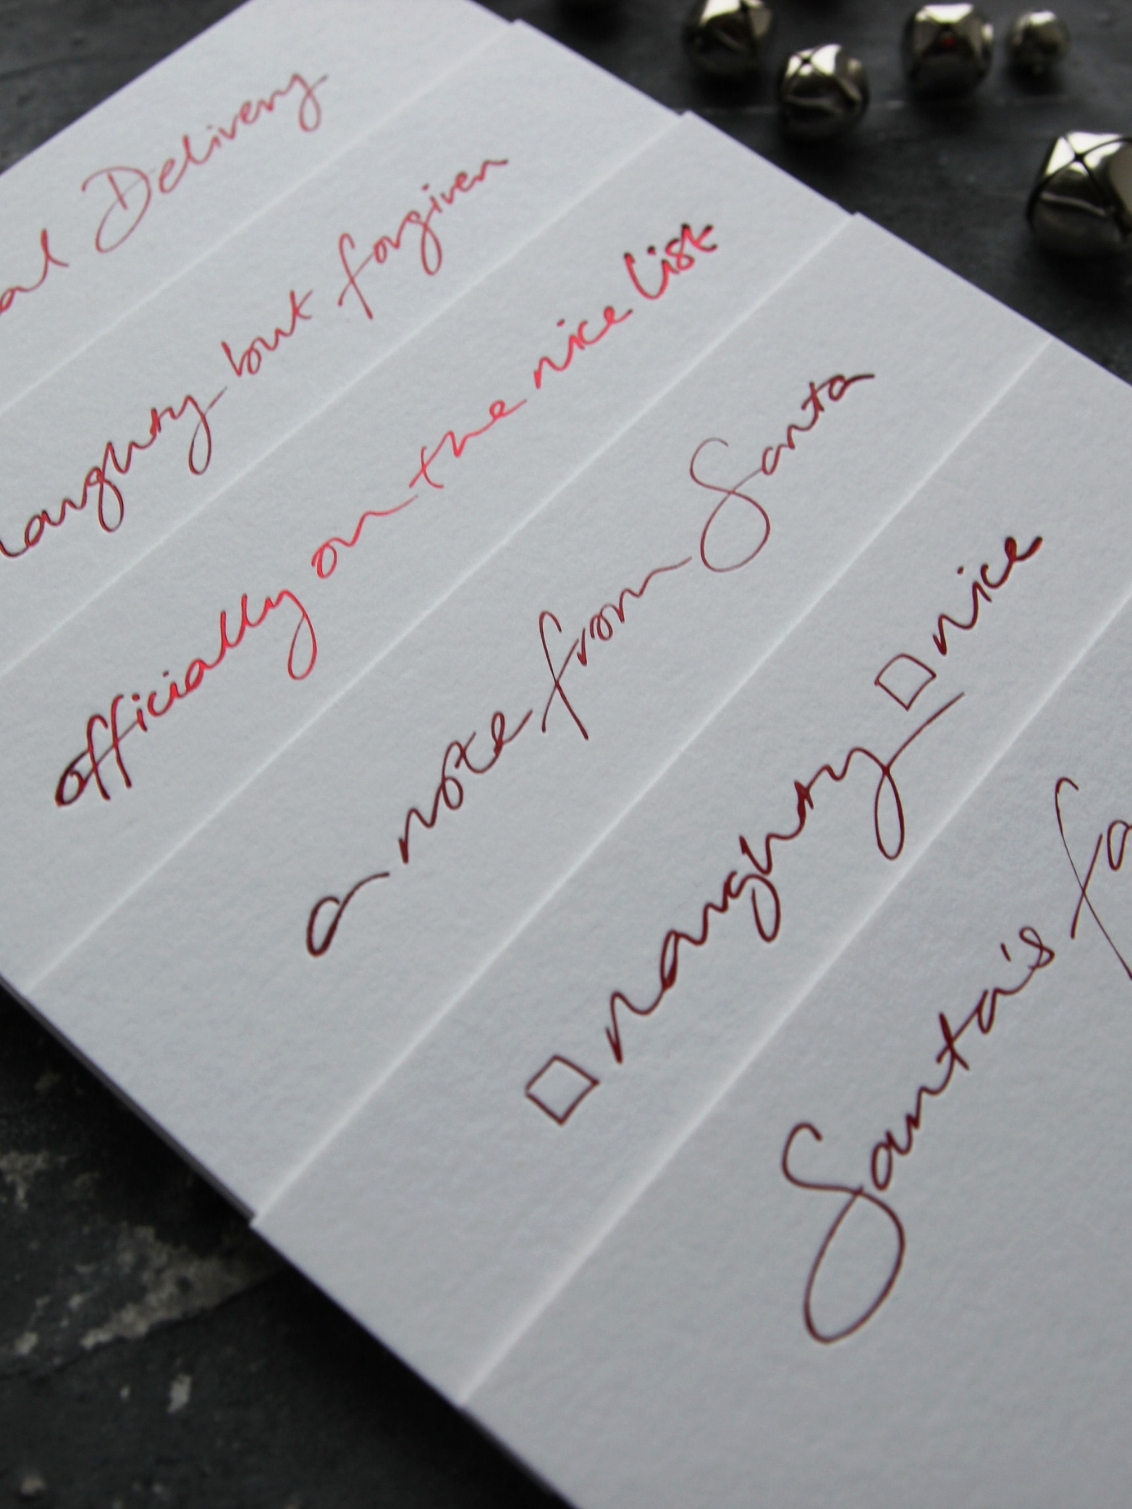 al Delivery
naughty but forgiven
officially on the nice list
a note from Santa
☐ naughty ☐ nice
Santa's fa